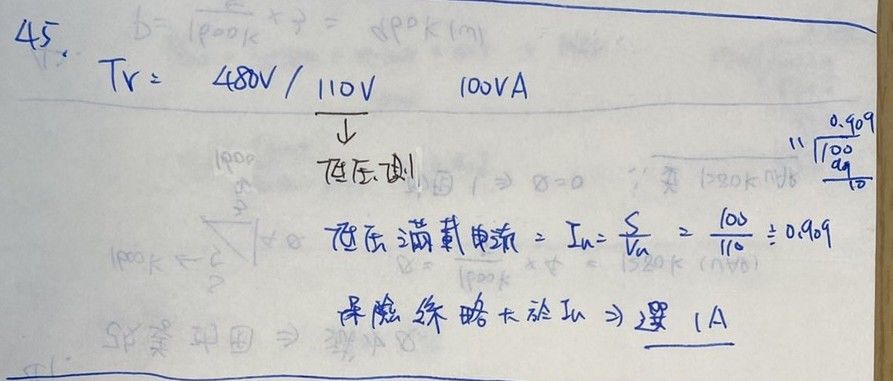 45.
Tr = 480V / 110V 100VA
↓
低压側
低压滿載電流 = In = S/Vn = 100/110 ≒ 0.909
保險絲略大於In ⇒ 選 1A
0.909
11 100
99
10